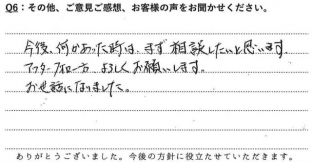 Q6：その他、ご意見ご感想、お客様の声をお聞かせください。
今後、何かあった時は、まず相談したいと思います。
アフターフォロー方、よろしくお願いします。
お世話になりました。
ありがとうございました。今後の方針に役立たせていただきます。